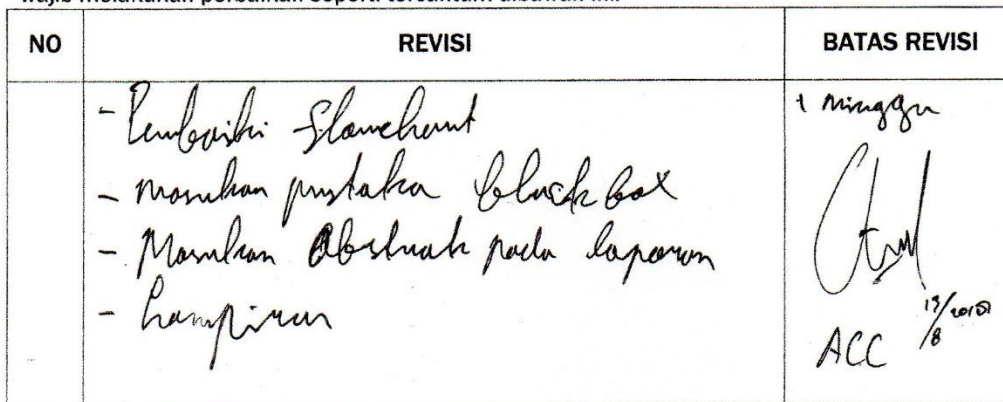 wajib melakukan perbaikan seperti tercantum dibawah ini:
NO REVISI BATAS REVISI
- Perbaiki Flowchart 1 minggu
- Masukan pustaka black box
- Masukan Abstrak pada laporan
- Lampiran
ACC